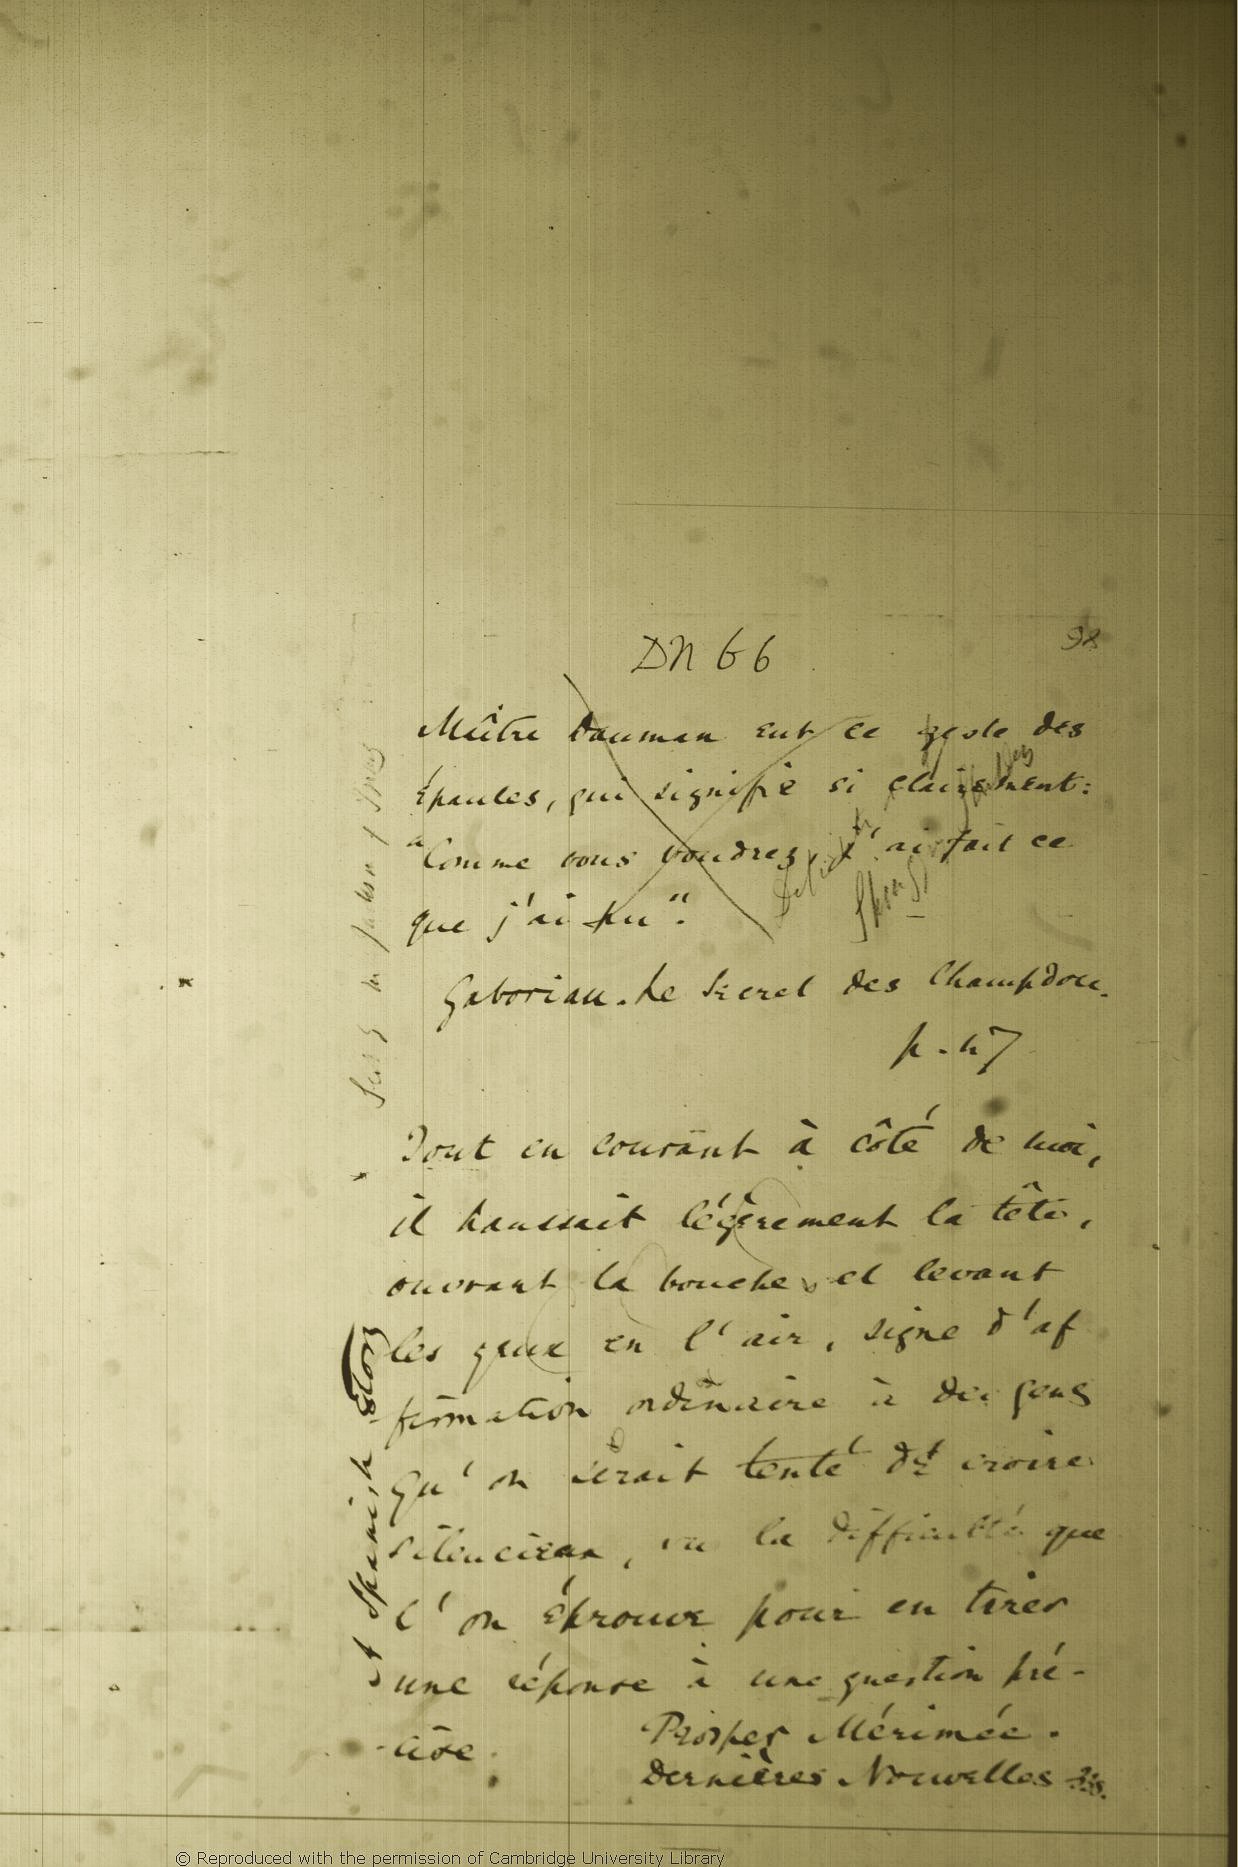 DN 66
98
Maître Dauman eut ce geste des
épaules, qui signifie si clairement:
"Comme vous voudrez, j'ai fait ce
que j'ai pu".
Gaboriau. Le Secret des Champdoce.
p. 47
Tout en courant à côté de moi,
il haussait légèrement la tête,
ouvrant la bouche et levant
les yeux en l'air, signe d'af
firmation ordinaire à des gens
qu'on serait tenté de croire
silencieux, vu la difficulté que
l'on éprouve pour en tirer
une réponse à une question pré-
cise.
Prosper Mérimée.
Dernières Nouvelles
A Spanish Story
© Reproduced with the permission of Cambridge University Library